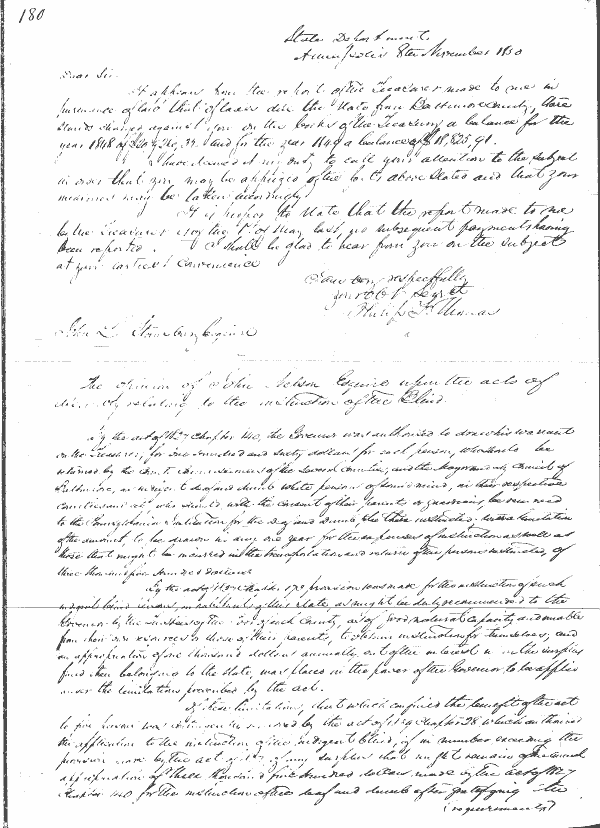 180
State Department
Annapolis 8th November 1850
Dear Sir.
It appears from the report of the Treasurer made to me in
pursuance of law that of taxes due the State from Baltimore county, there
stands charged against you on the books of the Treasury a balance for the
year 1848 of and for the year 1849 a balance of $18,825,91.
I have deemed it my duty to call your attention to the subject
in order that you may be apprized of the facts above stated and that your
measures may be taken accordingly.
It is proper to state that the report made to me
by the Treasurer is of the 1st of May last, no subsequent payments having
been reported. I should be glad to hear from you on the subject
at your earliest convenience
I am very respectfully
your obt Servt
Philip F. Thomas
John L. Esquire
The opinion of John Nelson Esquire upon the acts of
relating to the instruction of the Blind.
By the act of 1827 Chapter 140, the Governor was authorized to draw his warrant
on the Treasurer, for one hundred and sixty dollars for each person, who shall be
returned by the County Commissioners of the several Counties, and the Mayor and City Council of
Baltimore, as indigent deaf and dumb white persons of sane mind, in their respective
counties and city who should with the consent of their parents or guardians, be removed
to the Pennsylvania Institution for the Deaf and Dumb, to be there instructed, with a limitation
of the amount, to be drawn in any one year for the expenses of instruction as well as
those that might be incurred in the transportation and return of the persons instructed, of
three thousand five hundred dollars
By the act of provision was made for the instruction of such
indigent blind persons, inhabitants of this State, as might be duly recommended to the
Governor by the of the of each County, as of good natural capacity and unable
from their own resources or those of their parents, to obtain instruction for themselves, and
an appropriation of one thousand dollars annually, out of the interest on the surplus
fund then belonging to the State, was placed in the power of the Governor, to be applied
under the limitations prescribed by the act.
Of these limitations, that which confined the benefits of the act
to five persons was by the act of 1839 Chapter 28 which authorised
the application to the instruction of the indigent blind, if in number exceeding the
provision made by the act of of any surplus that might remain of the annual
appropriation of three thousand five hundred dollars, made by the act of 1827
Chapter 140 for the instruction of the deaf and dumb after gratifying the
(requirements)